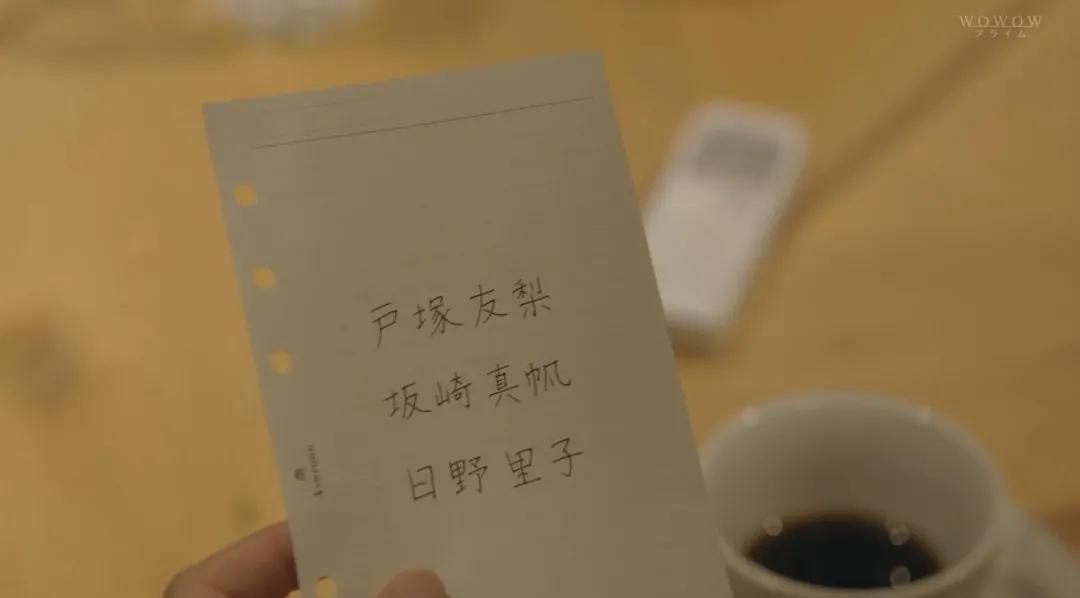 WOWOW
プライム
戸塚友梨
坂崎真帆
日野里子